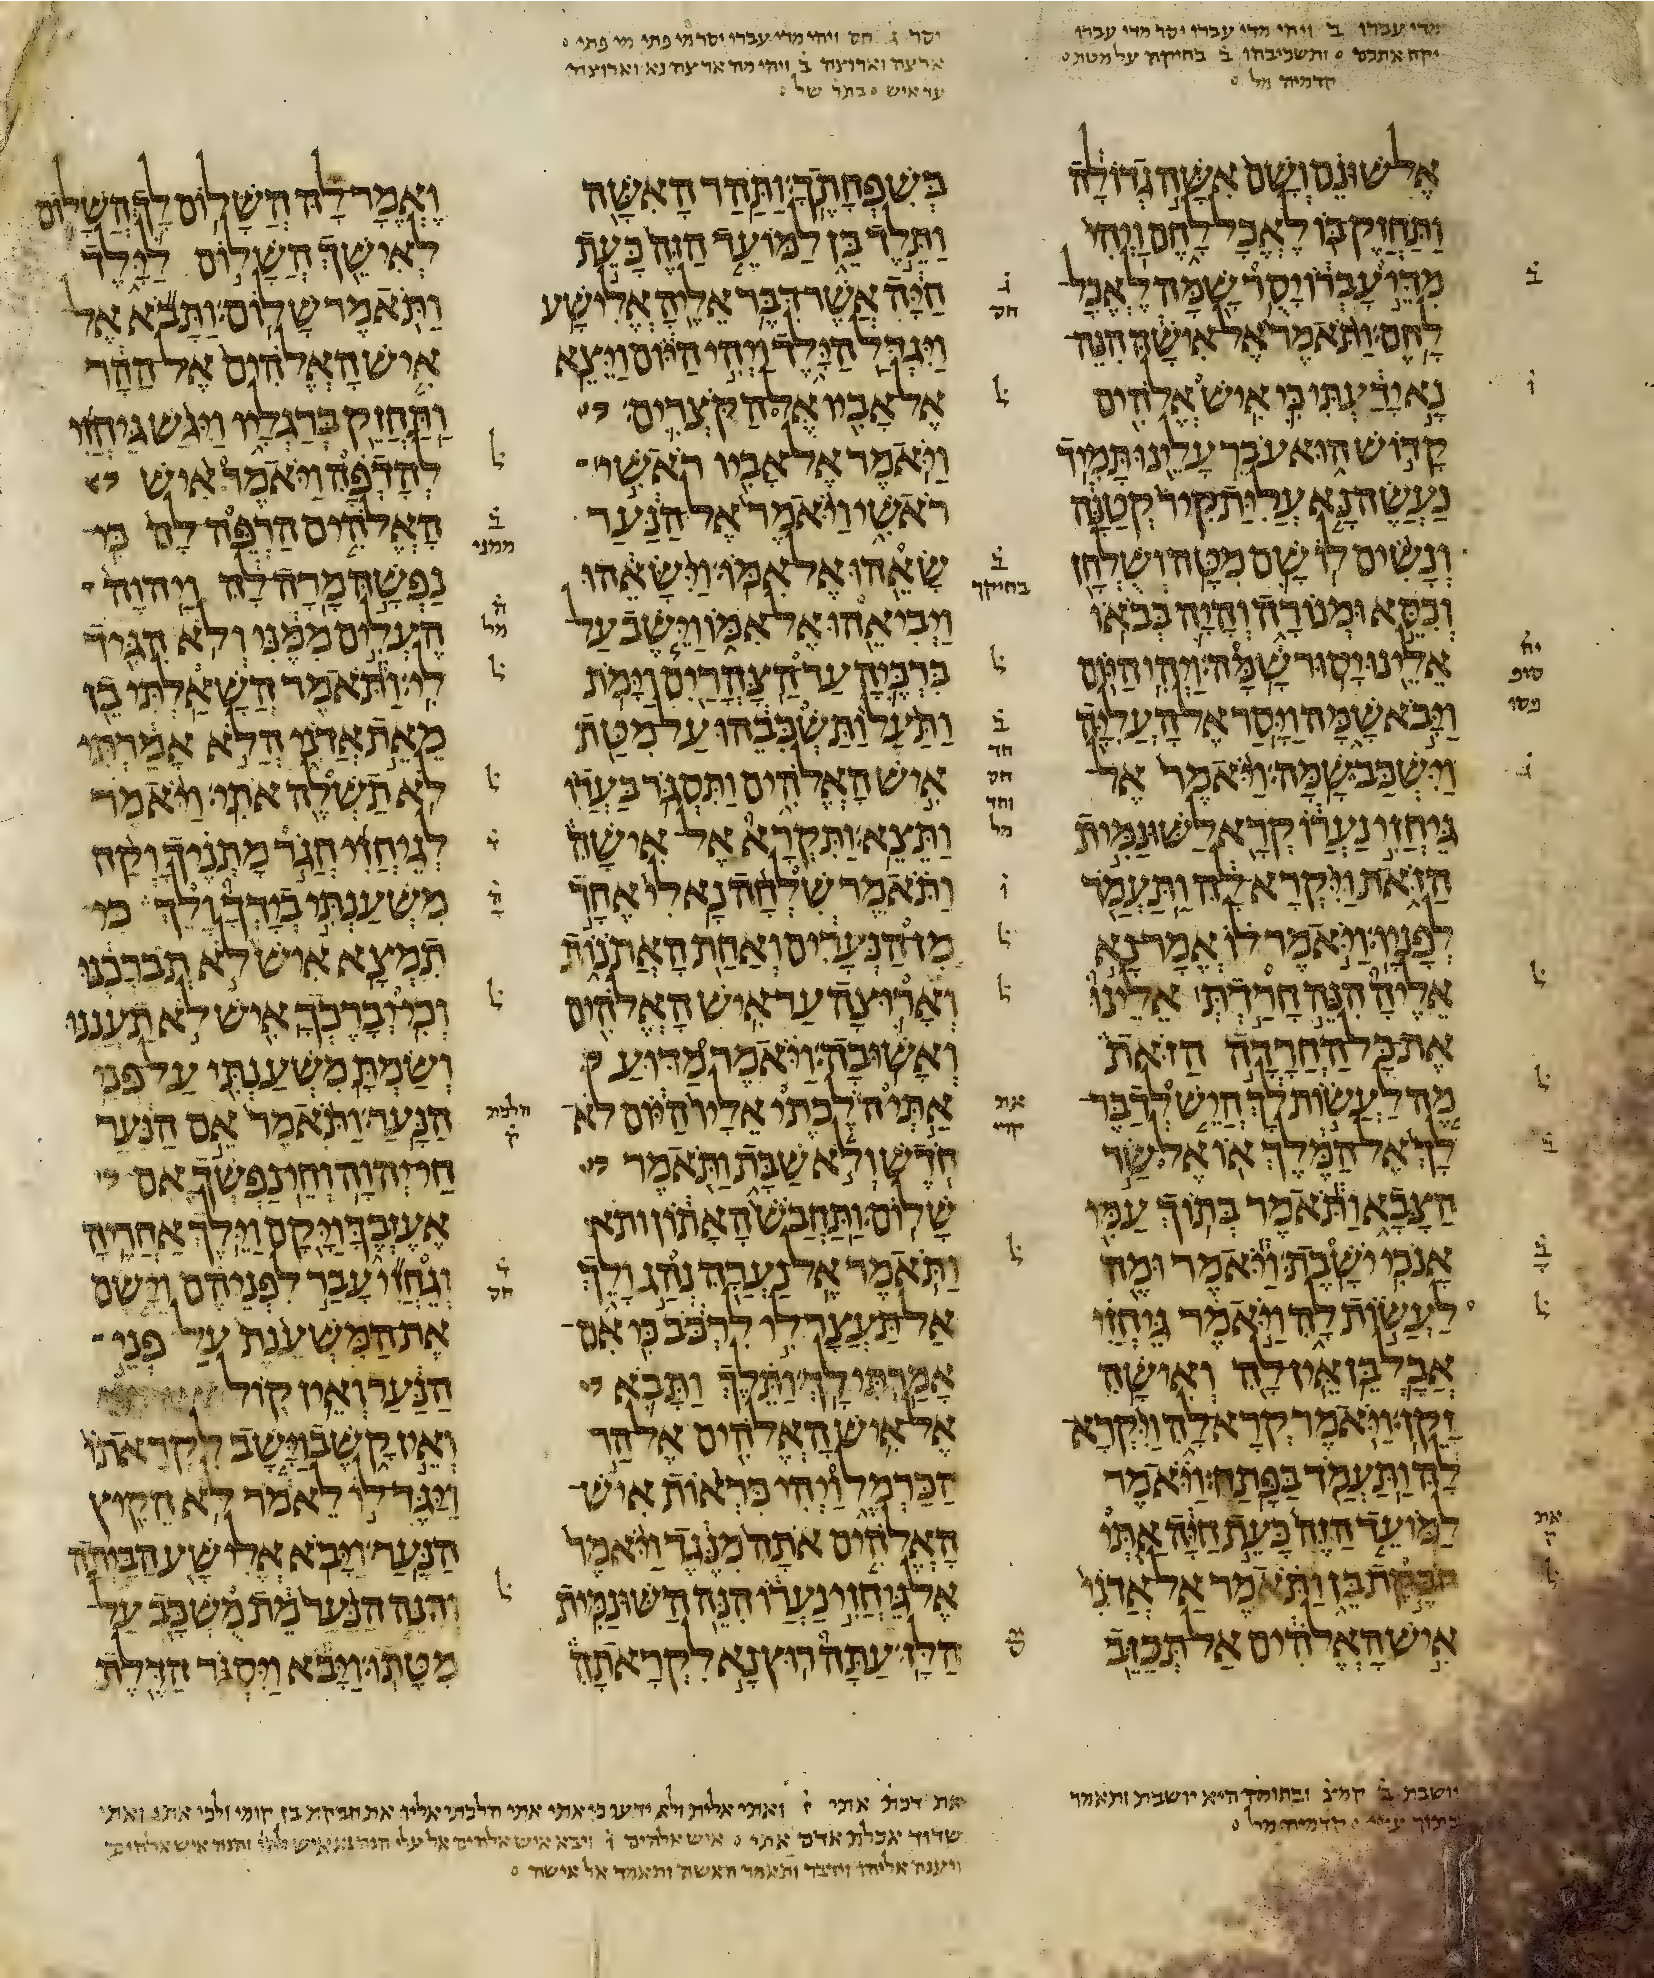 מדי עברו ב ויהי מדי עברו יסר מדי עברו
יקח אתכם ותשכיבהו ב בחיקה על מטת
קדמיה מל
אל שונם ושם אשה גדולה
ותחזק בו לאכל לחם ויהי
מדי עברו יסר שמה לאכל
לחם ותאמר אל אישה הנה
נא ידעתי כי איש אלהים
קדוש הוא עבר עלינו תמיד
נעשה נא עלית קיר קטנה
ונשים לו שם מטה ושלחן
וכסא ומנורה והיה בבאו
אלינו יסור שמה ויהי היום
ויבא שמה ויסר אל העליה
וישכב שמה ויאמר אל
גיחזי נערו קרא לשונמית
הזאת ויקרא לה ותעמד
לפניו ויאמר לו אמר נא
אליה הנה חרדת אלינו
את כל החרדה הזאת
מה לעשות לך היש לדבר
לך אל המלך או אל שר
הצבא ותאמר בתוך עמי
אנכי ישבת ויאמר ומה
לעשות לה ויאמר גיחזי
אבל בן אין לה ואישה
זקן ויאמר קרא לה ויקרא
לה ותעמד בפתח ויאמר
למועד הזה כעת חיה אתי
חבקת בן ותאמר אל אדני
איש האלהים אל תכזב
יושבת ב קמ ובתומר היא יושבת ותאמר
בתוך עמי קדמיה מל
יסר ג חס ויהי מדי עברו יסר מי פתי מי פתי
ארצה וארוצה ב ויהי מה ארצה נא וארוצה
עד איש בתר של
בשפחתך ותהר האשה
ותלד בן למועד הזה כעת
חיה אשר דבר אליה אלישע
ויגדל הילד ויהי היום ויצא
אל אביו אל הקצרים
ויאמר אל אביו ראשי
ראשי ויאמר אל הנער
שאהו אל אמו וישאהו
ויביאהו אל אמו וישב על
ברכיה עד הצהרים וימת
ותעל ותשכבהו על מטת
איש האלהים ותסגר בעדו
ותצא ותקרא אל אישה
ותאמר שלחה נא לי אחד
מן הנערים ואחת האתנות
וארוצה עד איש האלהים
ואשובה ויאמר מדוע
אתי הלכתי אליו היום לא
חדש ולא שבת ותאמר
שלום ותחבש האתון ותא
ותאמר אל נערה נהג ולך
אל תעצר לי לרכב כי אם
אמרתי לך ותלך ותבא
אל איש האלהים אל הר
הכרמל ויהי כראות איש
האלהים אתה מנגד ויאמר
אל גיחזי נערו הנה השונמית
הלז עתה רוץ נא לקראתה
ואמר לה השלום לך השלום
לאישך השלום לילד
ותאמר שלום ותבא אל
איש האלהים אל ההר
ותחזק ברגליו ויגש גיחזי
להדפה ויאמר איש
האלהים הרפה לה כי
נפשה מרה לה ויהוה
העלים ממני ולא הגיד
לי ותאמר השאלתי בן
מאת אדני הלא אמרתי
לא תשלה אתי ויאמר
לגיחזי חגר מתניך וקח
משענתי בידך ולך כי
תמצא איש לא תברכנו
וכי יברכך איש לא תעננו
ושמת משענתי על פני
הנער ותאמר אם הנער
חי יהוה וחי נפשך אם
אעזבך ויקם וילך אחריה
וגחזי עבר לפניהם וישם
את המשענת על פני
הנער ואין קול
ואין קשב וישב לקראתו
ויגד לו לאמר לא הקיץ
הנער ויבא אלישע הביתה
והנה הנער מת משכב על
מטתו ויבא ויסגר הדלת
ואתי אלית ולא ידעו כי אתי אתי הלכתי אליו את חבקת בן קומי ולכי
שדוד אכלת אדם אתי איש אלהים ויבא איש אלהים אל עלי הנה נא איש אלהים והנה איש אלהים
ויענה אליהו וידבר ותאמר האשה ותאמר אל אישה